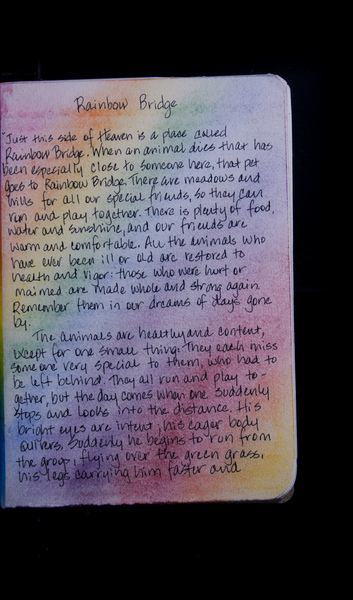 Rainbow Bridge
"Just this side of Heaven is a place called
Rainbow Bridge. When an animal dies that has
been especially close to someone here, that pet
goes to Rainbow Bridge. There are meadows and
hills for all our special friends, so they can
run and play together. There is plenty of food,
water and sunshine, and our friends are
warm and comfortable. All the animals who
have ever been ill or old are restored to
health and vigor: those who were hurt or
maimed are made whole and strong again.
Remember them in our dreams of days gone
by.
The animals are healthy and content,
except for one small thing: They each miss
someone very special to them, who had to
be left behind. They all run and play to-
gether, but the day comes when one suddenly
stops and looks into the distance. His
bright eyes are intent, his eager body
quivers. Suddenly he begins to run from
the group, flying over the green grass,
his legs carrying him faster and